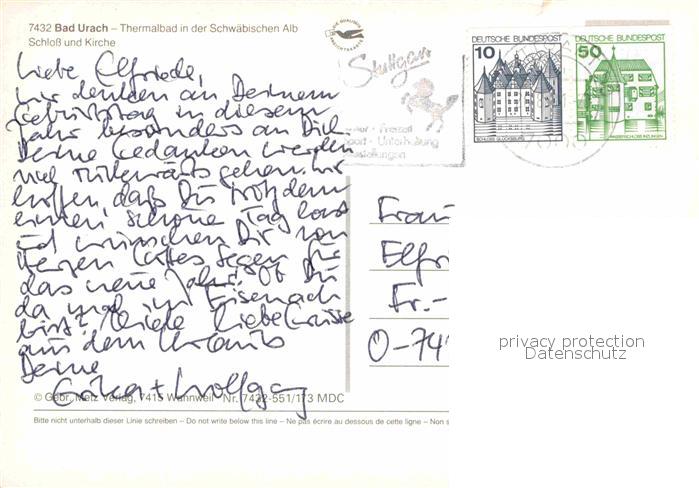 7432 Bad Urach – Thermalbad in der Schwäbischen Alb
Schloß und Kirche
DIE QUALITÄTS
ANSICHTSKARTE
DEUTSCHE BUNDESPOST
10
SCHLOSS GLÜCKSBURG
DEUTSCHE BUNDESPOST
50
WASSERSCHLOSS INZLINGEN
Stuttgart
Freizeit
Unterhaltung
Ausstellungen
Liebe Elfriede,
wir denken an Deinem
Geburtstag in diesem
Jahr besonders an Dich
Deine Gedanken werden
viel rückwärts gehen. Wir
hoffen, daß Du trotzdem
einen schönen Tag hast
und wünschen Dir von
Herzen Gottes Segen für
das neue Jahr. Ob Du
da mal in Eisenach
bist? Viele liebe Grüsse
aus dem Urlaub
Deine
Erika + Wolfgang
Frau
Elfri
Fr.-
O-74
privacy protection
Datenschutz
© Gebr. Metz Verlag, 7415 Wannweil Nr. 7432-551/173 MDC
Bitte nicht unterhalb dieser Linie schreiben – Do not write below this line – Ne pas écrire au dessous de cette ligne – Non s